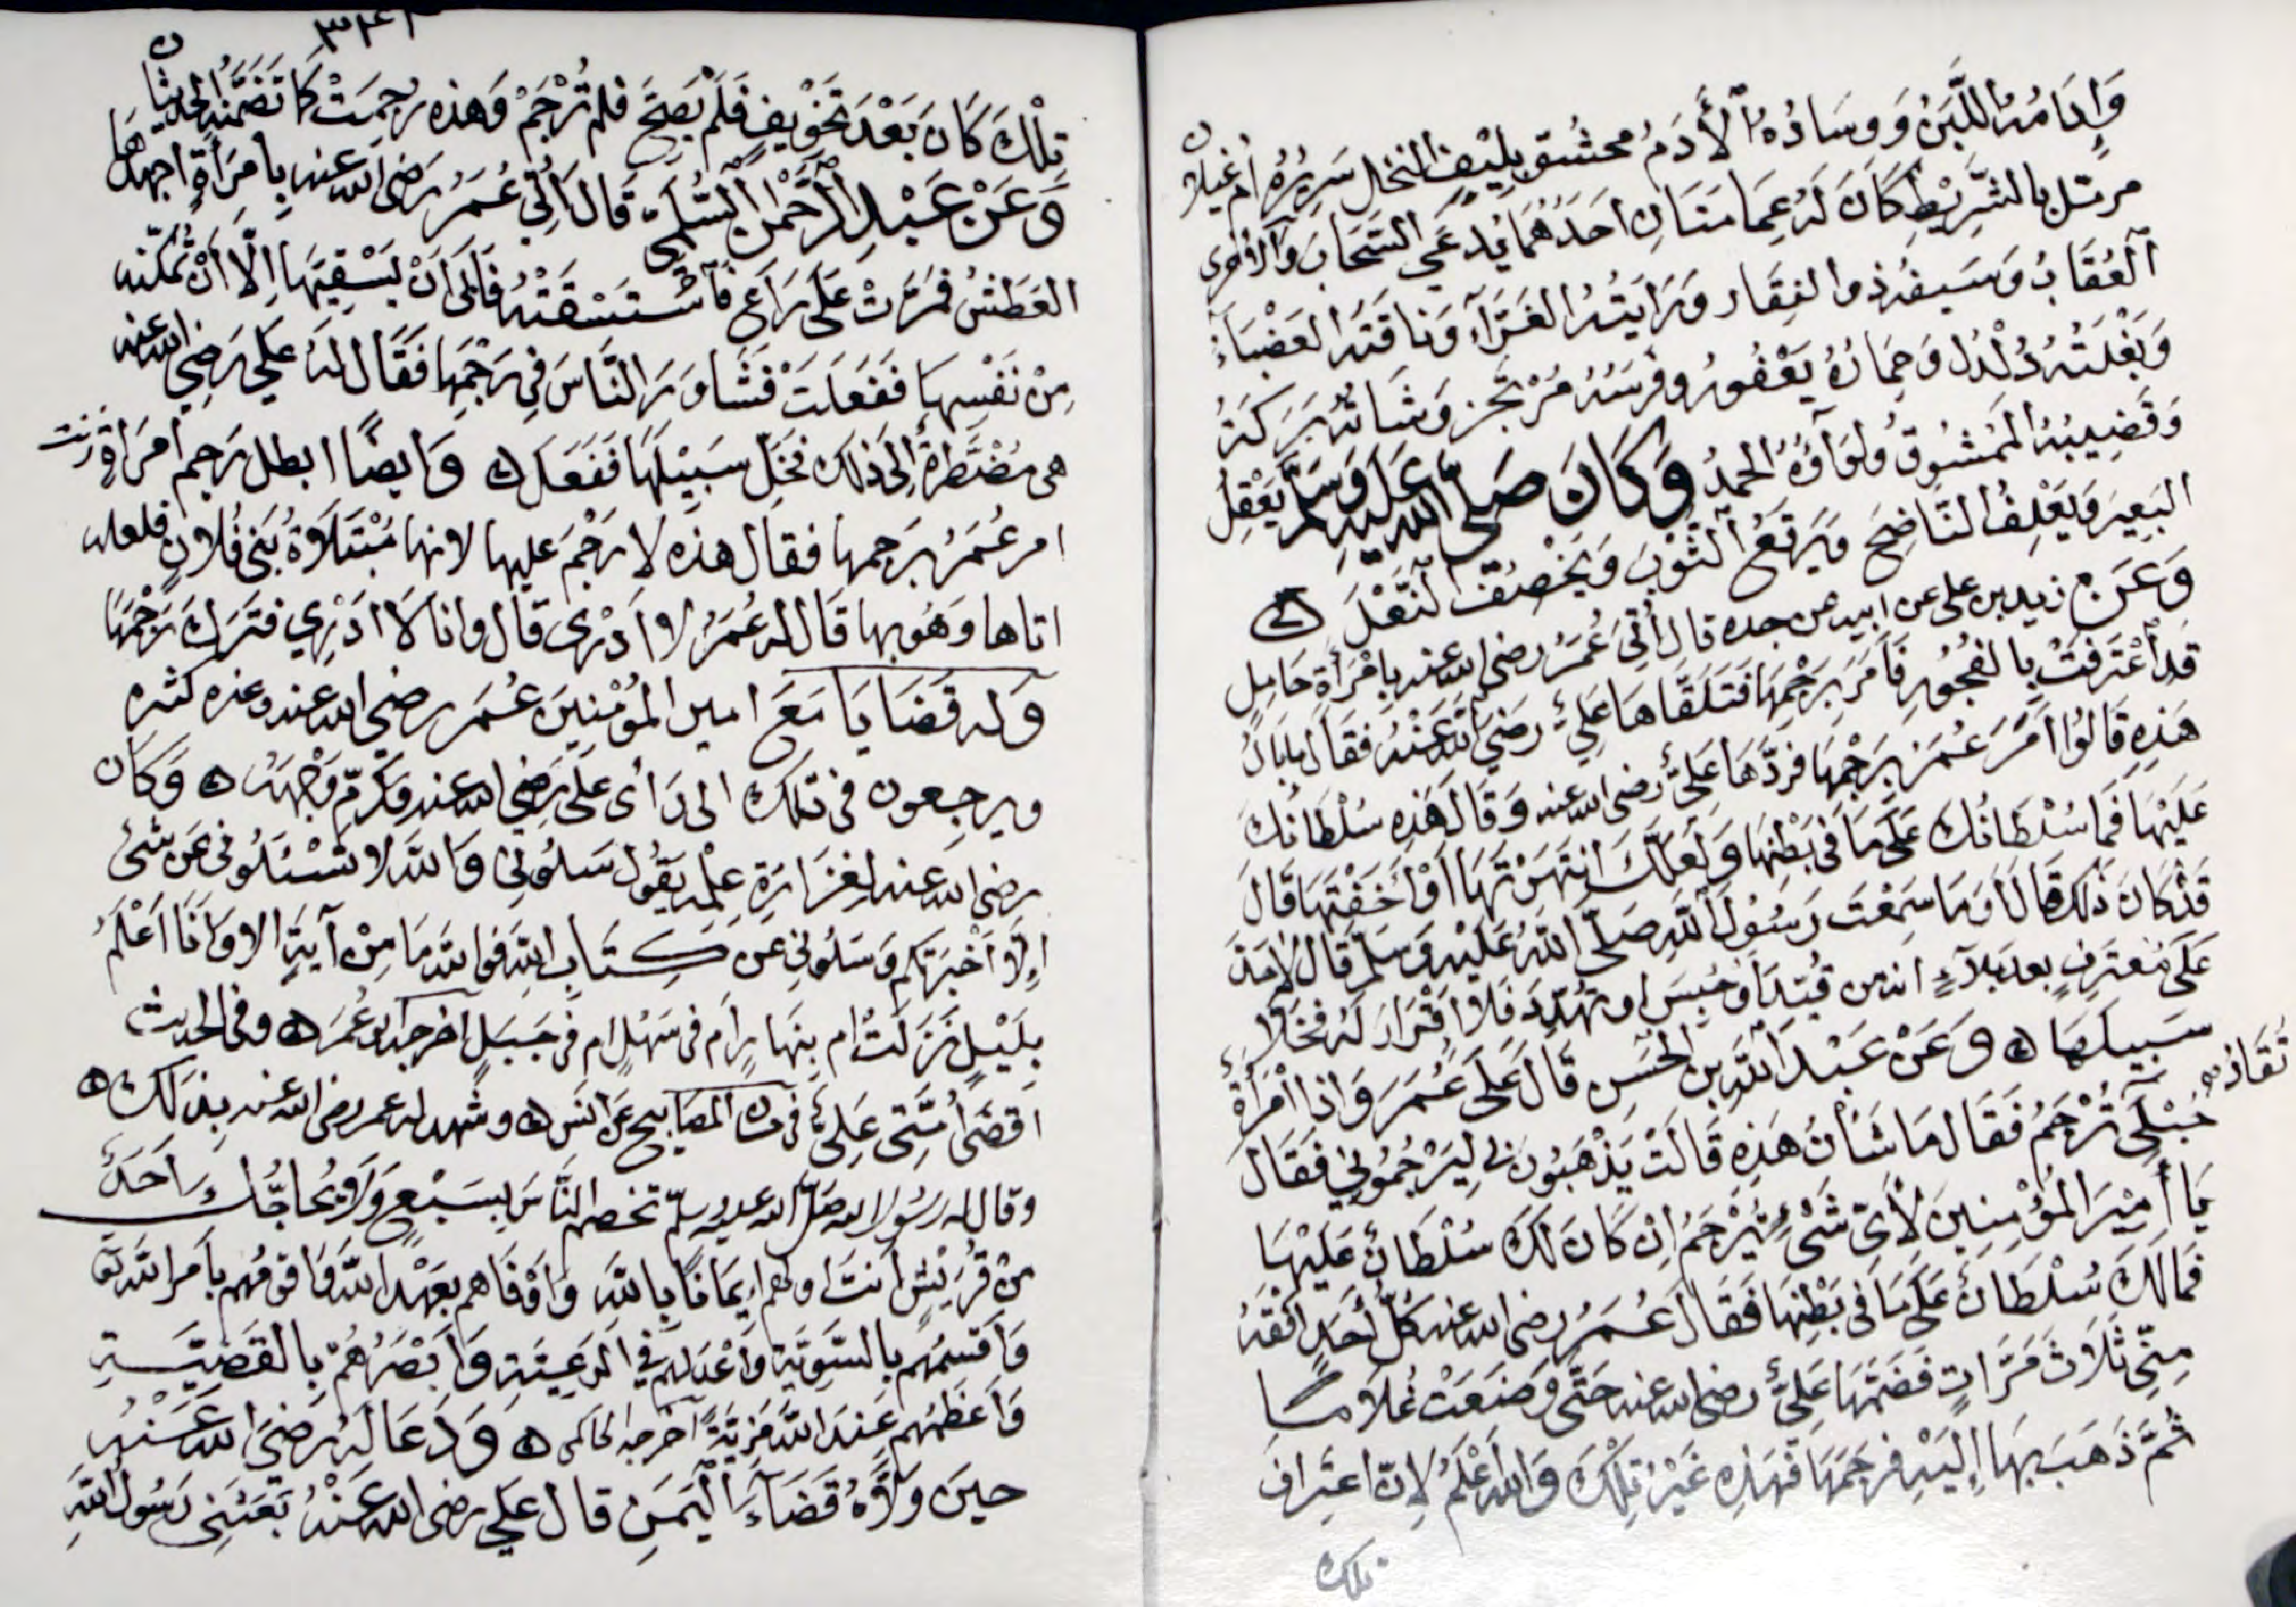 وَإِدَامُهُ اللَّبَنُ وَوِسَادُهُ الْأَدَمُ محشو بِلِيْفِ النخل سَرِيرُهُ أم غيلان
مرمّل بالشَّرِيْطِ كَانَ لَهُ عِمَامَتَانِ احَدُهُمَا يُدعَى السَّحَابَ وَالاخرى
الْعُقَابُ وَسَيفُهُ ذو الفِقَار وَرَايَتُهُ الغَرَّآءَ وَنَاقَتُهُ العَضْبَاءَ
وَبَغْلَتُهُ دُلْدُل وَحِمَارُهُ يَعْفُورُ وفَرَسُهُ مُرْتَجز وَشَاتُهُ بَرَكَةُ
وَقَضِيبُهُ الْمَمْشُوقُ وَلِوَآؤُهُ الحمدُ وَكَانَ صَلَّى اللَّه عَلَيْهِ وَسَلَّمَ يَعْقِلُ
البَعِيرَ وَيَعْلِفُ النَّاضِحَ وَيَرْقَعُ الثَّوْبَ وَيَخْصِفُ النَّعْلَ ۞
وَعَن زيد بن على عن ابيه عن جده قال أُتِيَ عُمَرُ رضى الله عنه بِامْرَأَةٍ حَامِلٍ
قَدِ اعْتَرَفَتْ بِالفُجُورِ فَأَمَرَ بِرَجْمِهَا فَتَلَقَّاهَا عَلِيُّ رَضِيَ اللَّهُ عَنْهُ فَقَالَ مابَالُ
هَذِهِ قَالُوا امَرَ عُمَرُ بِرَجْمِهَا فَرَدَّهَا عَلِيٌّ رضى الله عنه وَقَالَ هَذِهِ سُلْطَانُكَ
عَلَيْهَا فَمَا سُلْطَانُكَ عَلَى مَا فِي بَطْنِهَا وَلَعَلَّكَ انْتَهَرْتَهَا اوْ اَخَفْتَهَا قَالَ
قَدْ كَانَ ذَلِكَ قَالَ اَوَمَا سَمِعْتَ رَسُولَ اللَّهِ صَلَّى اللَّهُ عَلَيْهِ وَسَلَّمَ قَالَ لَاحَدَّ
عَلَى مُعتَرِفٍ بعد بلآءٍ انه من قُيِّدَ أَوْ حُبِسَ او تُهُدِّدَ فَلَا اقْرَارَ لَهُ فَخَلَّا
سَبِيلَهَا ۞ وَعَنْ عَبْدِ اللَّهِ بن الْحَسَنِ قَالَ عَلَى عُمَرَ وَاذا امْرَأَةٌ
حُبْلَى تُرْجَمُ فَقَالَ مَا شَأْنُ هَذِهِ قَالَتْ يَذْهَبُونَ بِي لِيَرْجُمُونِي فَقَالَ
يَا أَمِيْرَ الْمُؤْمِنِينَ لأَيِّ شَيْءٍ تُرْجَمُ اِنْ كَانَ لَكَ سُلْطَانٌ عَلَيْهَا
فَمَالَكَ سُلْطَانٌ عَلَى مَا فِي بَطْنِهَا فَقَالَ عُمَرُ رضى الله عنه كُلُّ أَحَدٍ افْقَهُ
مِنِّي ثَلَاثَ مَرَّاتٍ فَضَمَّهَا عَلِيٌّ رضى الله عنه حَتَّى وَضَعَتْ غُلَامًا
ثُمَّ ذَهَبَ بِهَا اِلَيْهِ فَرَجَمَهَا فَهَذِهِ غَيْرُ تِلْكَ وَاللهُ أَعْلَمُ لِاَنَّ اعتراف
تلك
تِلْكَ كَانَ بَعْدَ تَخْوِيفٍ فَلَمْ يَصِحَّ فلم تُرْجَمْ وَهَذِهِ رُجِمَتْ كَمَا تَضَمَّنَهُ الحديثان
وَعَنْ عَبْدِ الرَّحْمنِ السُّلَمِيّ قَالَ أُتِيَ عُمَرُ رَضي الله عنه بِامْرَأَةٍ اجهدها
العَطَشُ فَمَرَّتْ عَلَى رَاعٍ فَاسْتَسْقَتْهُ فَأَبَى اَنْ يَسْقِيَهَا اِلَّا اَنْ تُمَكِّنَه
مِنْ نَفْسِهَا فَفَعَلَتْ فَشَاوَرَ النَّاسَ فِي رَجْمِهَا فَقَالَ لَهُ عَلَى رَضِيَ الله عنه
هى مُضْطَرةٌ اِلَى ذَلِكَ فَخَلِّ سَبِيْلَهَا فَفَعَلَ ۞ وَايضًا ابطل رَجم امرَاةٍ زنت
امر عُمَرُ بِرَجمها فقال هذه لا رَجْمَ عليها لانها مُبْتَلَاةُ بَنِي فُلَانٍ فلعله
اتاها وَهُوَ بها قَالَ له عُمَرُ لا اَدْرِى قَالَ وانا لَا ادْرِي فَتَرَكَ رَجْمَهَا
وَلَه قَضَايَا مَعَ امير المُؤمِنِينَ عُمَرَ رضى الله عنه وغيره كثيره
ويرجعون فى تلك الى رَأى عَلِى رَضِى الله عنه وَكَرَّمَ وَجْهَهُ ۞ وَكَان
رضى الله عنه لِغَزَارَةِ عِلْمِه يَقُول سَلُونِي وَاللَّهِ لا تَسْئَلُونِى عَن شَيْءٍ
اِلَّا اَخْبَرتُكم وَسَلُونِي عَن كِتَابِ اللَّهِ فَوالله مَا مِنْ آيَةٍ الا وَاَنَا اَعْلَمُ
بِلَيْلٍ نَزَلَتْ ام بِنَهَارٍ اَم فِى سَهْلٍ ام فِى جَبَلٍ اخرجه ابو عُمَرَ ۞ وفى الحديث
اَقْضَى أُمَّتِي عَلِيٌّ المصابيح عَن انس ۞ وشهد له عمر رضى الله عنه بذلك ۞
وقال له رَسُولُ الله صَلَّى الله عليه وسلم تخصم النَّاسَ بِسَبْعٍ وَلَا يُحَاجُّكَ اَحَدٌ
مِنْ قُرَيْشٍ اَنْتَ اولهم اِيمَانًا بِاللَّهِ وَاوْفَاهم بِعَهْدِ اللَّهِ وَاقْوَمُهُم بِاَمر اللَّهِ تعَ
وَاَقْسَمُهُم بِالسَّوِيَّةِ وَاَعْدَلُهُم فِي الرعِيَّةِ وَاَبْصَرُهُمْ بِالْقَضِيَّةِ
وَاَعظَمُهم عِندَ اللَّهِ مَزِيَّةً اخرجه الحاكمى ۞ وَدَعَا لَهُ رَضِيَ الله عَنْهُ
حِينَ وَلَّاهُ قَضَاءَ الْيَمَنِ قال عَلِي رضى الله عَنْهُ بَعَثَنِي رَسُولُ اللَّهِ